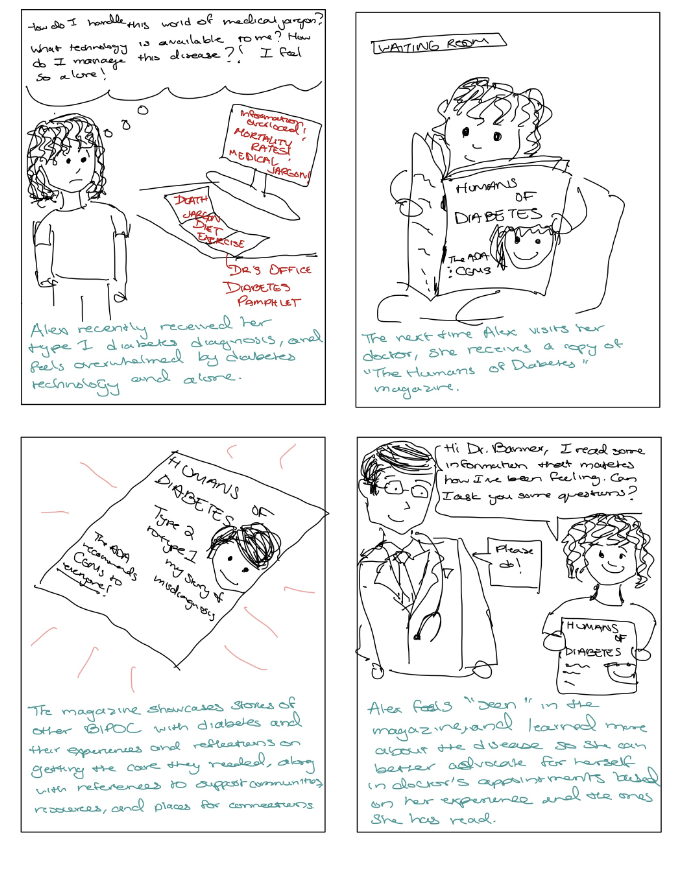 How do I handle this world of medical jargon?
What technology is available to me? How
do I manage this disease?! I feel
so alone!
Information
overload!
MORTALITY
RATES!
MEDICAL
JARGON
DEATH
JARGON
DIET
EXERCISE
DR'S OFFICE
DIABETES
PAMPHLET
Alex recently received her
type I diabetes diagnosis, and
feels overwhelmed by diabetes
technology and alone.
WAITING ROOM
HUMANS
OF
DIABETES
The ADA
: CGMS
The next time Alex visits her
doctor, she receives a copy of
"The Humans of Diabetes"
magazine.
HUMANS
OF
DIABETES
Type 2
or Type 1
my story of
misdiagnosis
The ADA
recommends
CGMs to
everyone!
The magazine showcases stories of
other BIPOC with diabetes and
their experiences and reflections on
getting the care they needed, along
with references to support communities,
resources, and places for connections
Hi Dr. Banner, I read some
information that matches
how I've been feeling. Can
I ask you some questions?
Please
do!
HUMANS
OF
DIABETES
Alex feels "seen" in the
magazine, and learned more
about the disease so she can
better advocate for herself
in doctor's appointments based
on her experience and the ones
she has read.